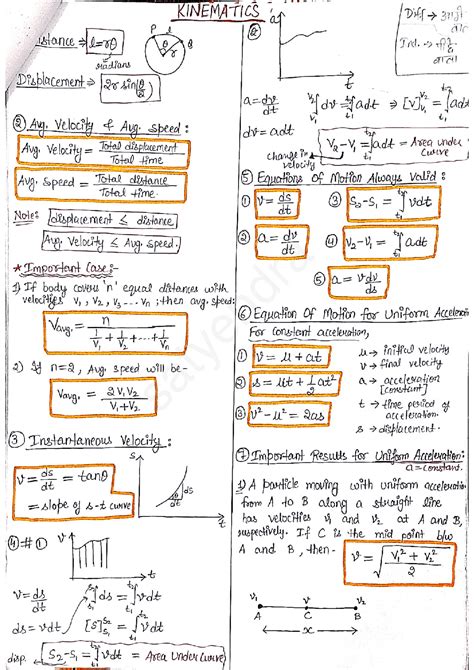 KINEMATICS
Distance → l=rθ
radians
Displacement → 2r sin(θ/2)
P
R
θ
r
② Avg. Velocity & Avg. speed :
Avg. Velocity = Total displacement / Total time
Avg. Speed = Total distance / Total time.
Note: displacement ≤ distance
Avg. Velocity ≤ Avg. speed.
* Important Case :-
1) If body covers 'n' equal distances with
velocities V₁, V₂, V₃ ... Vn ; then avg. speed:
Vavg. = n / (1/V₁ + 1/V₂ + ... 1/Vn)
2) If n=2, Avg. speed will be-
Vavg. = 2V₁V₂ / (V₁+V₂)
③ Instantaneous Velocity :
v = ds/dt = tanθ
= slope of s-t curve
s
θ
dt
t
④ # ①
v
t
v = ds/dt
∫ds = ∫vdt
ds = vdt
[s] = ∫vdt
disp. S₂-S₁ = ∫vdt = Area Under Curve
②
a
t
a = dv/dt
∫dv = ∫adt ⇒ [v] = ∫adt
dv = adt
V₂-V₁ = ∫adt = Area under curve
change in velocity
⑤ Equations Of Motion Always Valid :
① v = ds/dt
③ S₂-S₁ = ∫vdt
② a = dv/dt
④ V₂-V₁ = ∫adt
⑤ a = vdv/ds
⑥ Equation Of Motion for Uniform Acceleratio
For Constant acceleration,
① v = u + at
② s = ut + 1/2 at²
③ v²-u² = 2as
u → initial velocity
v → final velocity
a → acceleration [constant]
t → time period of acceleration.
s → displacement.
⑦ Important Results for Uniform Acceleration:
a = constant.
1) A particle moving with uniform acceleration
from A to B along a straight line
has velocities V₁ and V₂ at A and B,
respectively. If C is the mid point b/w
A and B, then-
v = √((V₁² + V₂²)/2)
V₁ v V₂
A C B
x